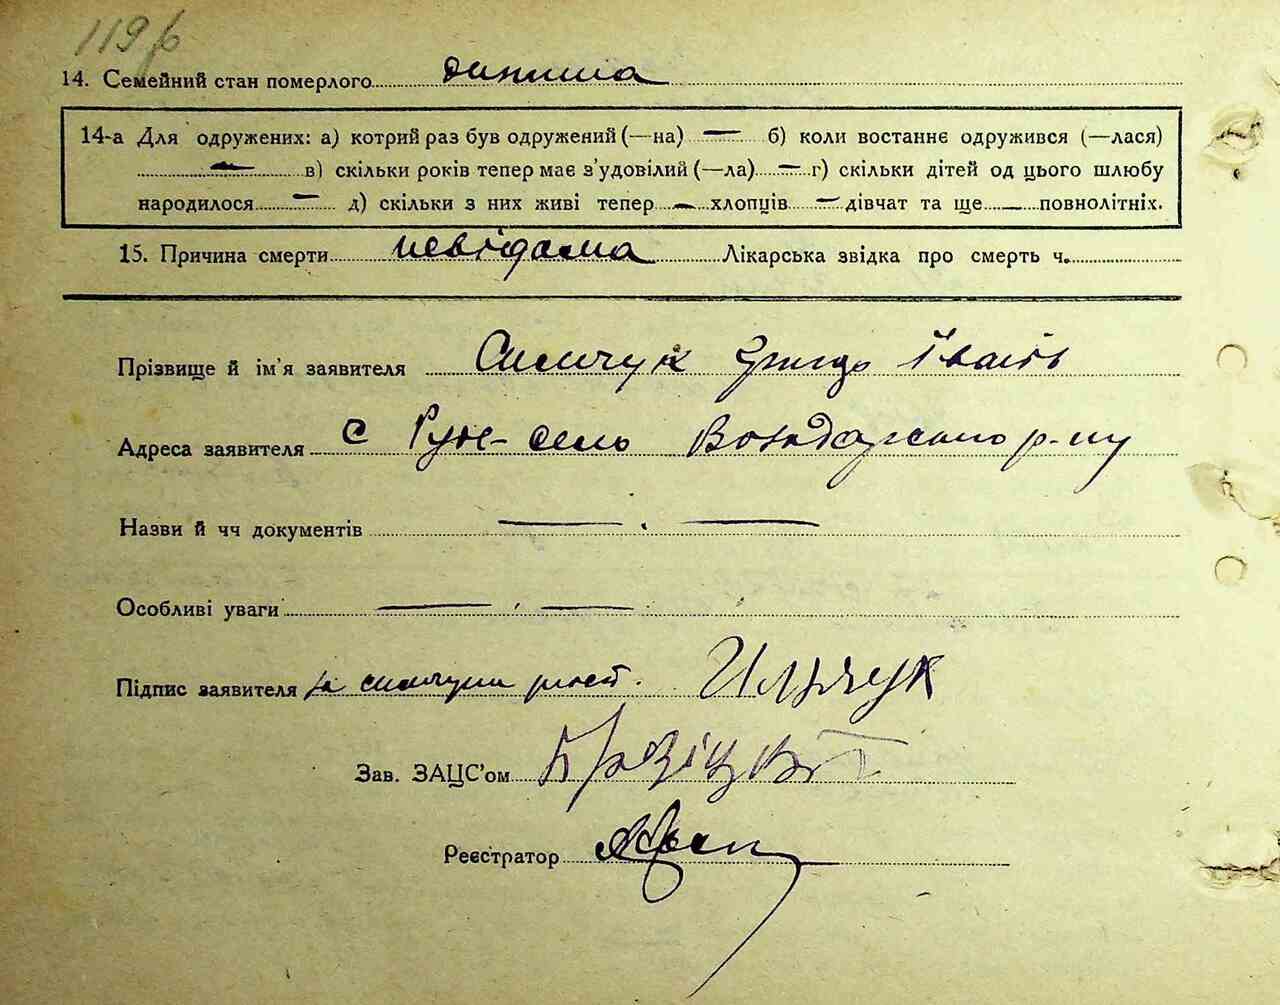 119
14. Семейний стан померлого дитина
14-а Для одружених: а) котрий раз був одружений (—на) — б) коли востаннє одружився (—лася)
— в) скільки років тепер має з'удовілий (—ла) — г) скільки дітей од цього шлюбу
народилося — д) скільки з них живі тепер — хлопців — дівчат та ще — повнолітніх.
15. Причина смерти невідома Лікарська звідка про смерть ч.
Прізвище й ім'я заявителя
Адреса заявителя с село р-ну
Назви й чч документів — . —
Особливі уваги — —
Підпис заявителя за Ильчук
Зав. ЗАЦС'ом
Реєстратор